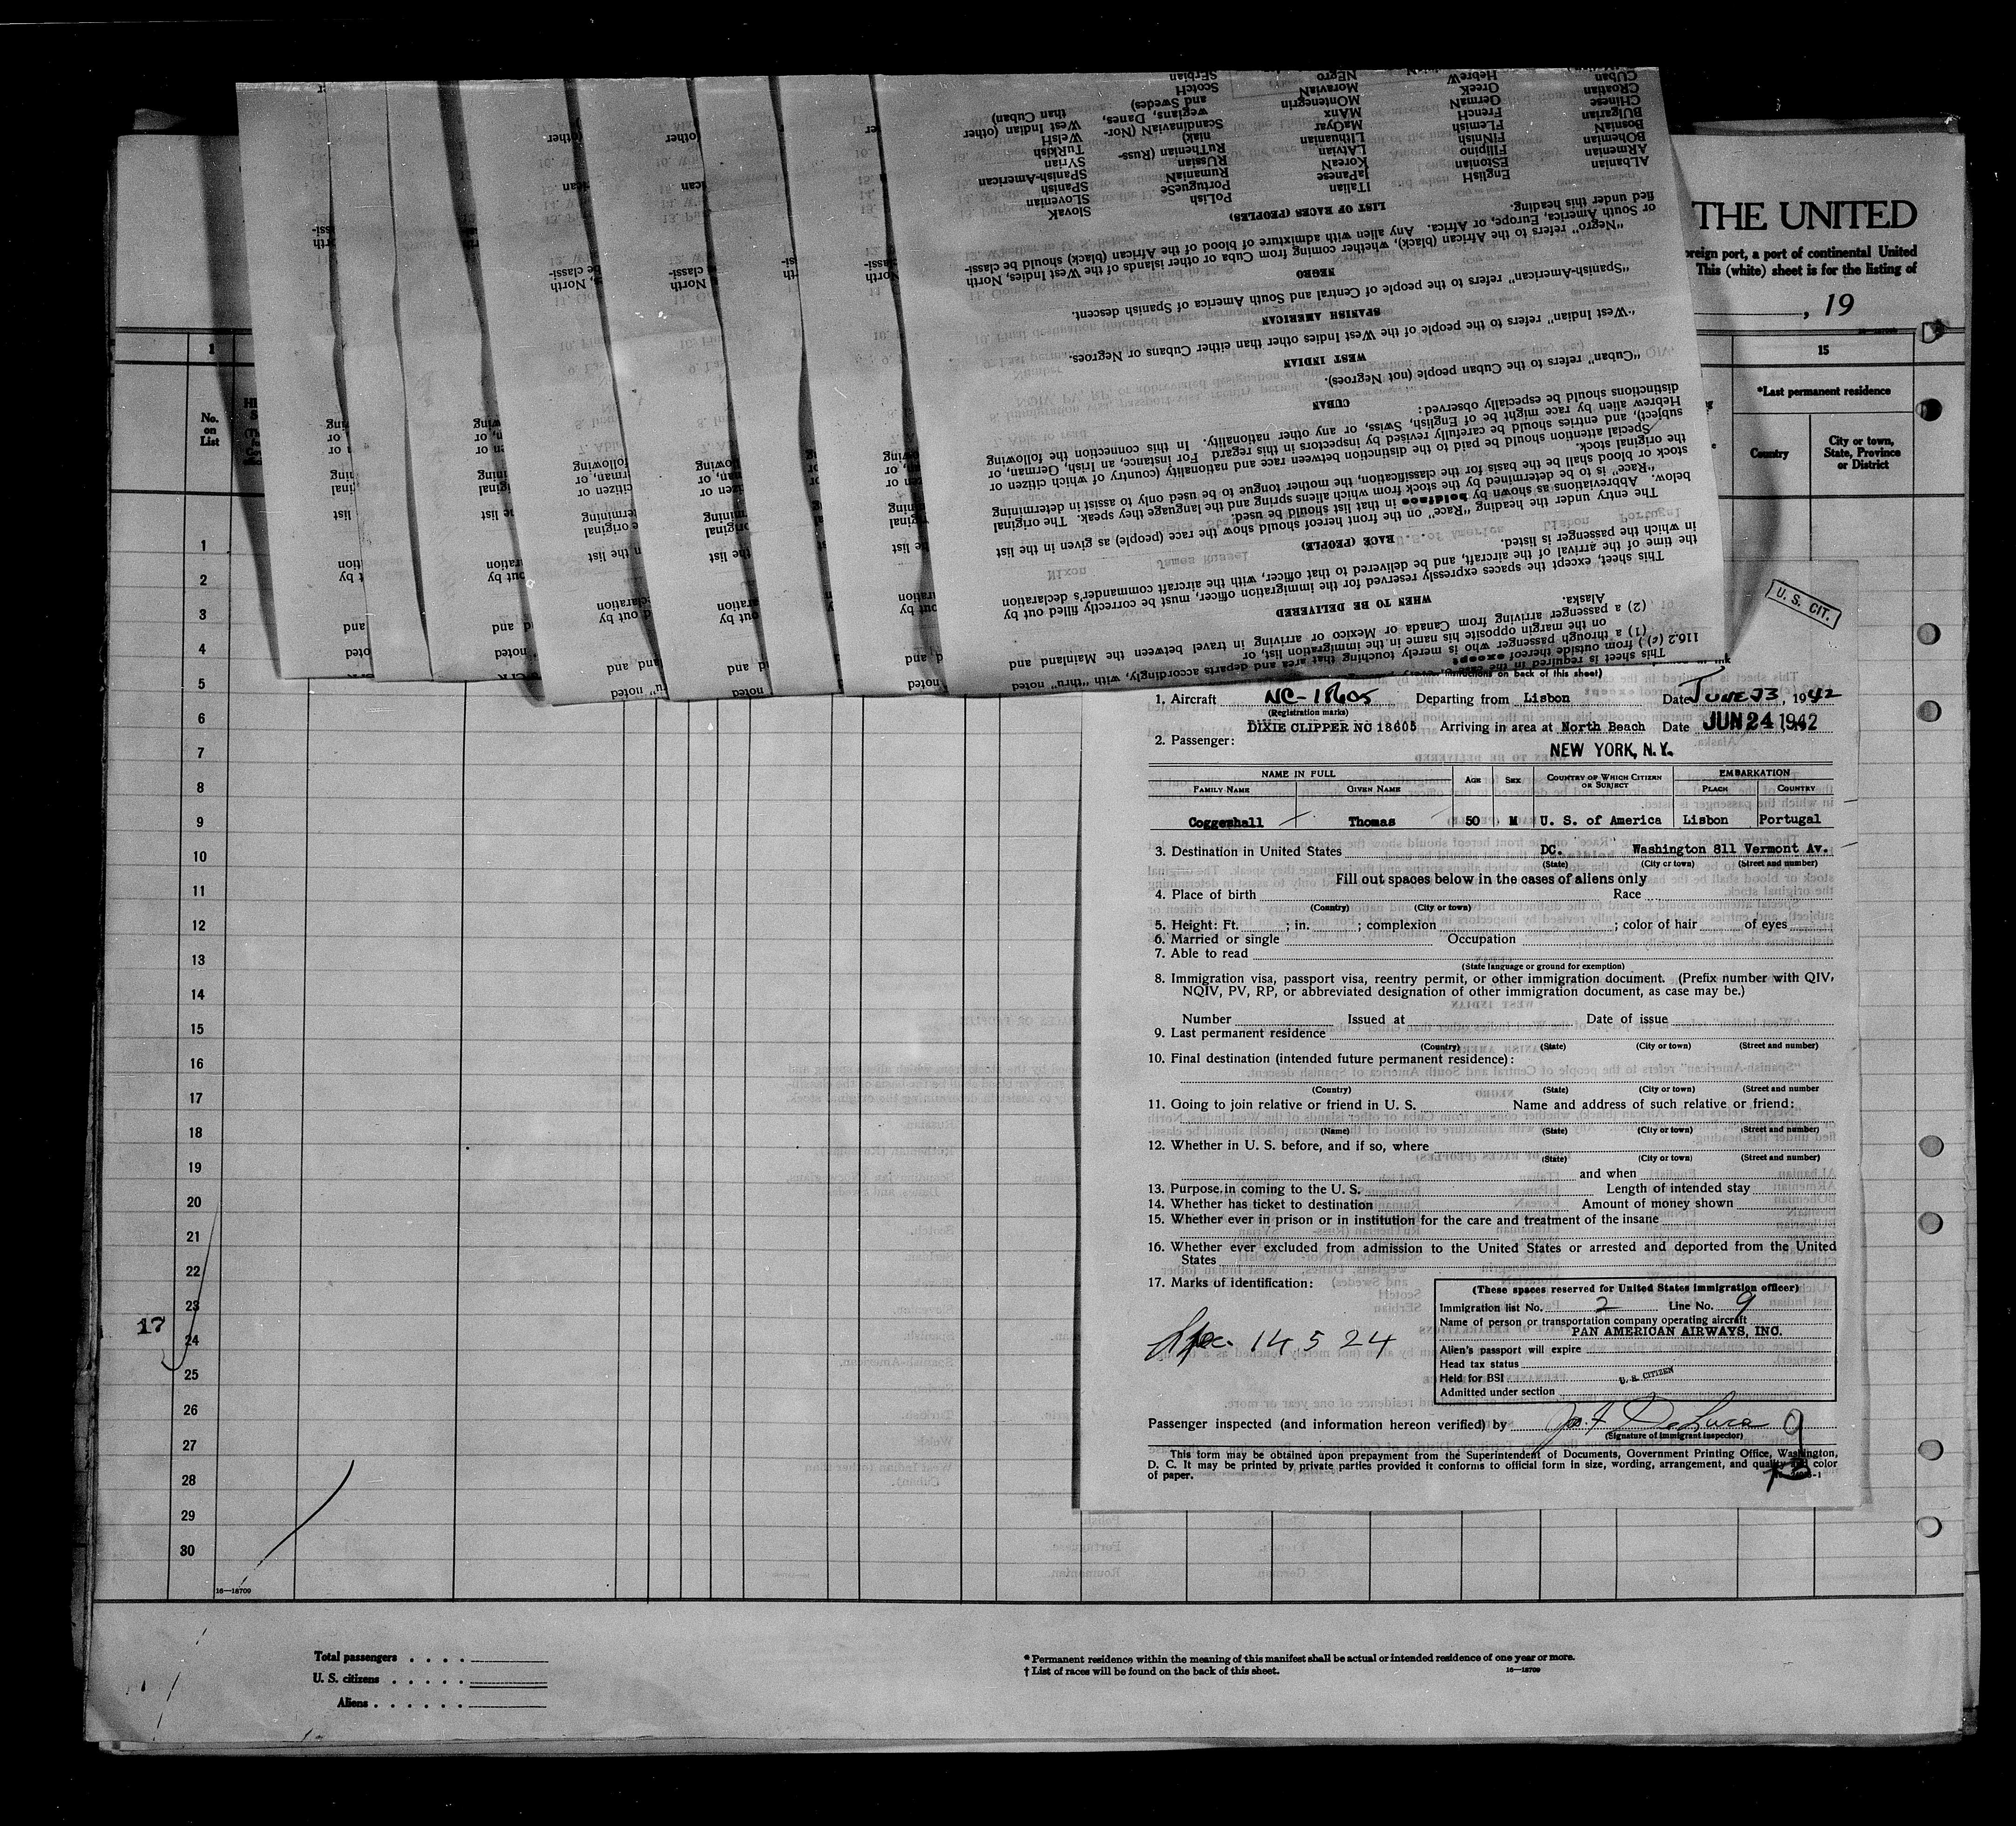 THE UNITED
oreign port, a port of continental United
This (white) sheet is for the listing of
, 19
1
15
No.
on
List
*Last permanent residence
Country
City or town,
State, Province
or District
U. S. CIT.
This sheet is required in the case
116.2 (c) ) from outside thereof except
(1) a through passenger who is merely touching that area and departs accordingly, with "thru" noted
on the margin opposite his name in the immigration list, or
(2) a passenger arriving from Canada or Mexico or arriving in travel between the Mainland and
Alaska.
WHEN TO BE DELIVERED
This sheet, except the spaces expressly reserved for the immigration officer, must be correctly filled out by
the time of the arrival of the aircraft, and be delivered to that officer, with the aircraft commander's declaration
in which the passenger is listed.
RACE (PEOPLE)
The entry under the heading "Race" on the front hereof should show the race (people) as given in the list
below. Abbreviations as shown by boldface in that list should be used.
"Race" is to be determined by the stock from which aliens spring and the language they speak. The original
stock or blood shall be the basis for the classification, the mother tongue to be used only to assist in determining
the original stock.
Special attention should be paid to the distinction between race and nationality (country of which citizen or
subject), and entries should be carefully revised by inspectors in this regard For instance, an Irish, German, or
Hebrew alien by race might be of English, Swiss, or any other nationality. In this connection the following
distinctions should be especially observed:
CUBAN
"Cuban" refers to the Cuban people (not Negroes).
WEST INDIAN
"West Indian" refers to the people of the West Indies other than either Cubans or Negroes.
SPANISH AMERICAN
"Spanish-American" refers to the people of Central and South America of Spanish descent.
NEGRO
"Negro" refers to the African (black), whether coming from Cuba or other islands of the West Indies, North
or South America, Europe, or Africa. Any alien with admixture of blood of the African (black) should be classi-
fied under this heading.
LIST OF RACES (PEOPLES)
ALbanian
ARmenian
BOhemian
BosniaN
BUlgarian
CHinese
CRoatian
CUban
EnglisH
EStonian
Filipino
FINish
FLemish
FrencH
GermaN
GreeK
HebreW
ITalian
JaPanese
KoreaN
LAtvian
LIthuanian
MaGyar
MAnx
MOntenegrin
MoraviaN
NEgro
PoLish
PortugueSe
RumaniaN
RUssian
RuThenian (Russ-
niak)
ScandinaviaN (Nor-
wegians, Danes,
and Swedes)
ScotcH
SErbian
SlovaK
SLovenian
SPanish
SPaniSh-American
SYrian
TuRkish
WelsH
West Indian (other
than Cuban)
1. Aircraft NC-18605 Departing from Lisbon Date JUNE 23, 1942
(Registration marks)
DIXIE CLIPPER NC 18605 Arriving in area at North Beach Date JUN 24 1942
2. Passenger: NEW YORK, N.Y.
NAME IN FULL AGE SEX COUNTRY OF WHICH CITIZEN OR SUBJECT EMBARKATION
FAMILY NAME GIVEN NAME PLACE COUNTRY
Coggeshall Thomas 50 M U. S. of America Lisbon Portugal
3. Destination in United States DC. Washington 811 Vermont Av.
(State) (City or town) (Street and number)
Fill out spaces below in the cases of aliens only
4. Place of birth Race
(Country) (City or town)
5. Height: Ft. ; in. ; complexion ; color of hair of eyes
6. Married or single Occupation
7. Able to read
(State language or ground for exemption)
8. Immigration visa, passport visa, reentry permit, or other immigration document. (Prefix number with QIV,
NQIV, PV, RP, or abbreviated designation of other immigration document, as case may be.)
Number Issued at Date of issue
9. Last permanent residence
(Country) (State) (City or town) (Street and number)
10. Final destination (intended future permanent residence):
(Country) (State) (City or town) (Street and number
11. Going to join relative or friend in U. S. Name and address of such relative or friend:
(Name) (State) (City or town) (Street and number)
12. Whether in U. S. before, and if so, where
(State) (City or town) (Street and number)
and when
13. Purpose in coming to the U. S. Length of intended stay
14. Whether has ticket to destination Amount of money shown
15. Whether ever in prison or in institution for the care and treatment of the insane
16. Whether ever excluded from admission to the United States or arrested and deported from the United
States
17. Marks of identification:
14 5 24
(These spaces reserved for United States immigration officer)
Immigration list No. 2 Line No. 9
Name of person or transportation company operating aircraft
PAN AMERICAN AIRWAYS, INC.
Alien's passport will expire
Head tax status
Held for BSI U. S. CITIZEN
Admitted under section
Passenger inspected (and information hereon verified) by Jos. F. DeLuca 9
(Signature of immigrant inspector)
This form may be obtained upon prepayment from the Superintendent of Documents, Government Printing Office, Washington,
D. C. It may be printed by private parties provided it conforms to official form in size, wording, arrangement, and quality and color
of paper.
1
2
3
4
5
6
7
8
9
10
11
12
13
14
15
16
17
18
19
20
21
22
23
17
24
25
26
27
28
29
30
16—18709
Total passengers . . . .
U. S. citizens . . . . .
Aliens . . . . . .
* Permanent residence within the meaning of this manifest shall be actual or intended residence of one year or more.
† List of races will be found on the back of this sheet. 16—18709